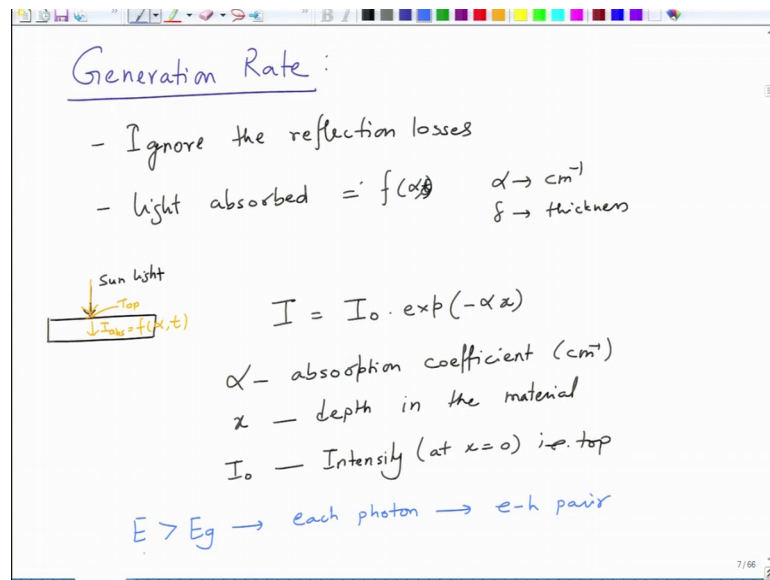 Generation Rate :
- Ignore the reflection losses
- light absorbed = f(α
α → cm⁻¹
δ → thickness
Sun light
Top
I_abs = f(α,t)
I = I₀ · exp(-αx)
α - absorption coefficient (cm⁻¹)
x - depth in the material
I₀ - Intensity (at x=0) i.e. top
E > Eg → each photon → e-h pair
7 / 66